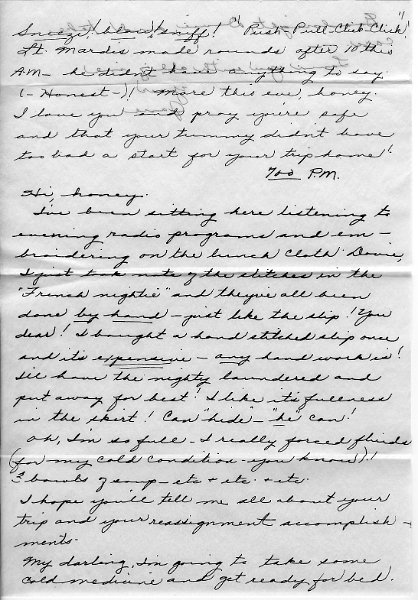 Sneeze! blow! sniff! "Push-Pull-Click-Click!"
Lt. Mardis made rounds after 10 this
A.M. - he didn't have anything to say.
(-Honest-)! More this eve, honey.
I love you and pray you're safe
and that your tummy didn't have
too bad a start for your trip home!
7:00 P.M.
Hi honey.
I've been sitting here listening to
evening radio programs and em-
broidering on the lunch cloth. Dovie,
I just took note of the stitches in the
"French nightie" and they've all been
done by hand - just like the slip! You
dear! I bought a hand stitched slip once
and it's expensive - any hand work is!
I'll have the nighty laundered and
put away for best! I like it's fullness
in the skirt! Can "hide" - "he" can!
Oh, I'm so full - I really forced fluids
(for my cold condition - you know)!
3 bowls of soup - etc + etc. + etc.
I hope you'll tell me all about your
trip and your reassignment accomplish-
ments.
My darling, I'm going to take some
cold medicine and get ready for bed.